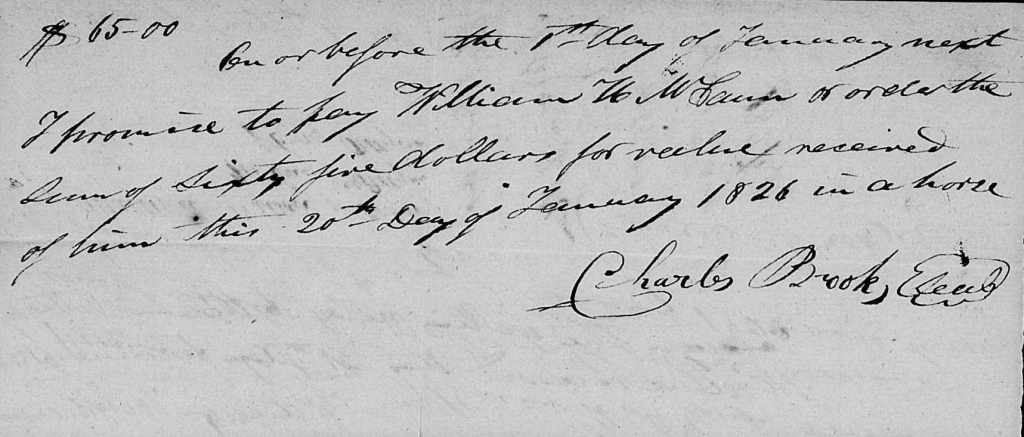 $ 65-00
On or before the 1st day of January next
I promise to pay William H McCann or order the
Sum of Sixty five dollars for value received
of him this 20th Day of January 1826 in a horse
Charles Brooks